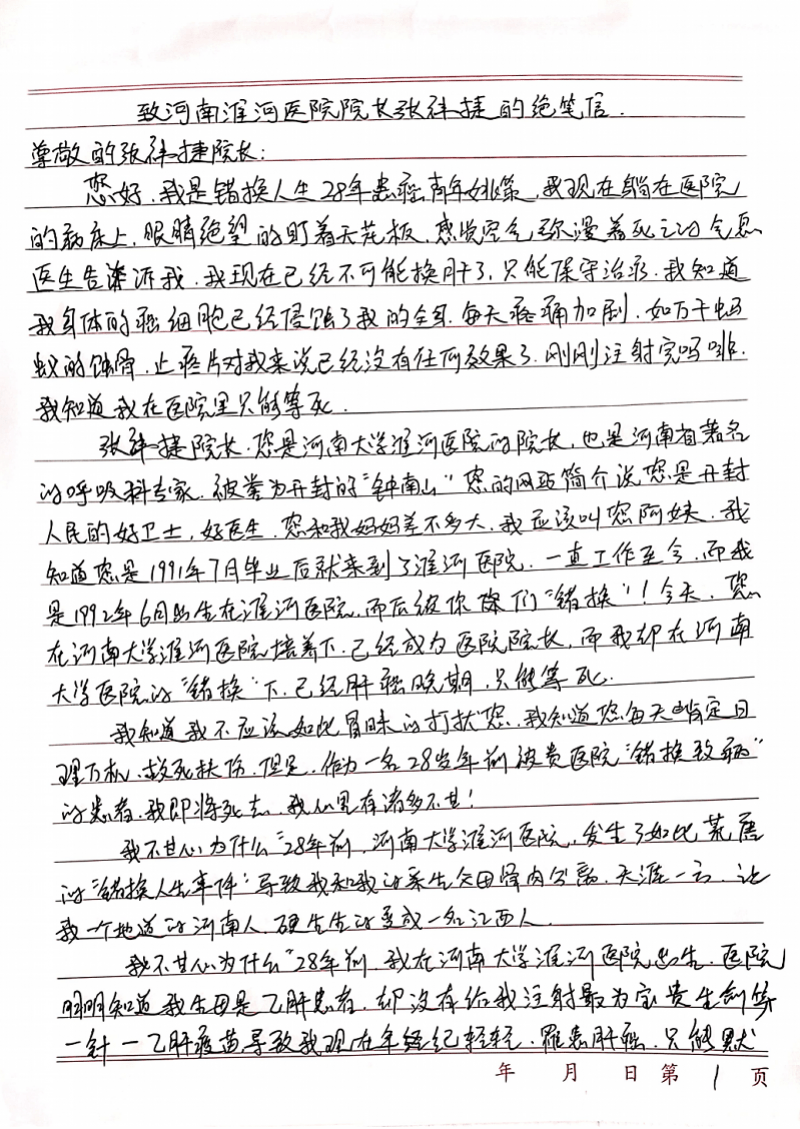 致河南淮河医院院长张祥捷的绝笔信.
尊敬的张祥捷院长:
您好,我是错换人生28年患癌青年姚策,我现在躺在医院
的病床上,眼睛绝望的盯着天花板,感觉空气弥漫着死亡的气息
医生告诉我,我现在已经不可能换肝了,只能保守治疗,我知道
我身体的癌细胞已经侵蚀了我的全身,每天疼痛加剧,如万千蚂
蚁的蚀骨,止疼片对我来说已经没有任何效果了,刚刚注射完吗啡.
我知道我在医院里只能等死.
张祥捷院长,您是河南大学淮河医院的院长,也是河南省著名
的呼吸科专家,被誉为开封的“钟南山”您的网站简介说您是开封
人民的好卫士,好医生,您和我妈妈差不多大,我应该叫您阿姨,我
知道您是1991年7月毕业后就来到了淮河医院,一直工作至今,而我
是1992年6月出生在淮河医院,而后被你们“错换”!今天,您
在河南大学淮河医院培养下,已经成为医院院长,而我却在河南
大学医院的“错换”下,已经肝癌晚期,只能等死.
我知道我不应该如此冒昧的打扰您,我知道您每天肯定日
理万机,救死扶伤,但是,作为一名28岁年前被贵医院“错换致病”
的患者,我即将死去,我心里有诸多不甘!
我不甘心为什么“28年前,河南大学淮河医院,发生了如此荒唐
的“错换人生事件”导致我和我的亲生父母骨肉分离,天涯一方,让
我一个地道的河南人,硬生生的变成一名江西人.
我不甘心为什么“28年前,我在河南大学淮河医院出生,医院
明明知道我生母是乙肝患者,却没有给我注射最为宝贵生命第
一针—乙肝疫苗,导致我现在年经纪轻轻,罹患肝癌,只能默
年 月 日第 1 页